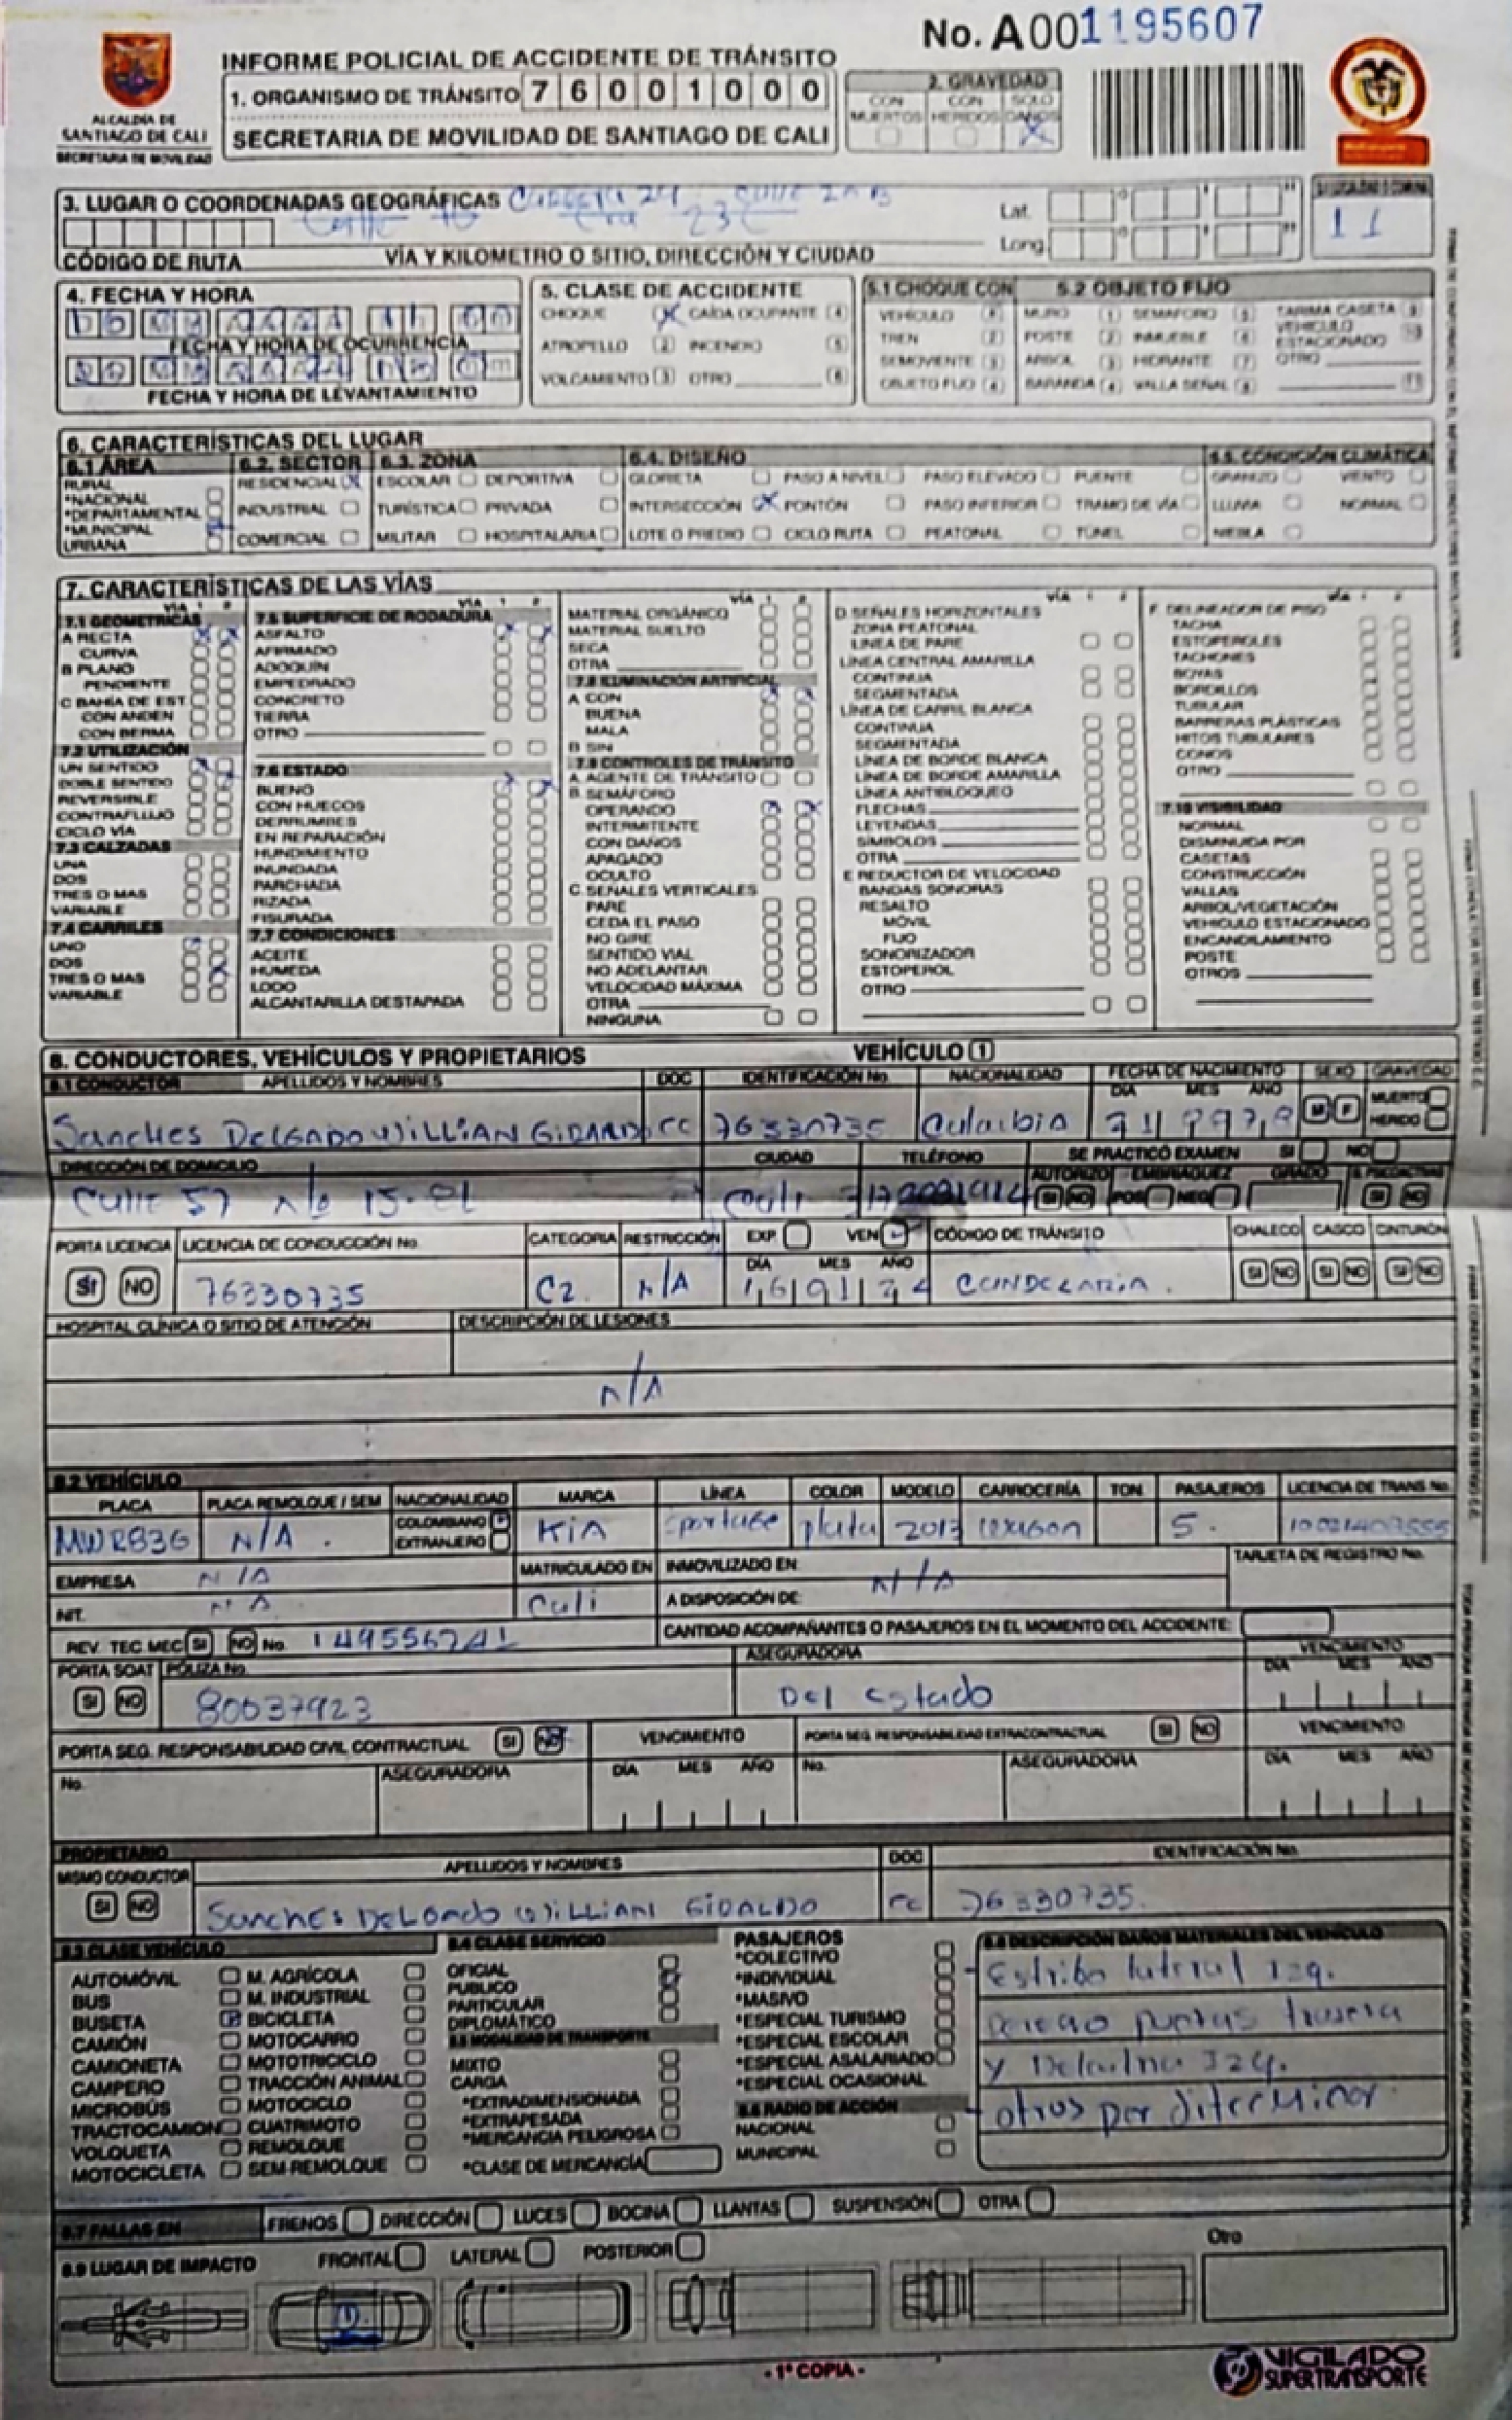 No. A001195607
INFORME POLICIAL DE ACCIDENTE DE TRÁNSITO
1. ORGANISMO DE TRÁNSITO 7 6 0 0 1 0 0 0
SECRETARIA DE MOVILIDAD DE SANTIAGO DE CALI
2. GRAVEDAD
CON MUERTOS CON HERIDOS SOLO DAÑOS X
ALCALDÍA DE
SANTIAGO DE CALI
SECRETARIA DE MOVILIDAD
3. LUGAR O COORDENADAS GEOGRÁFICAS
Lat.
Long.
11
CÓDIGO DE RUTA VÍA Y KILOMETRO O SITIO, DIRECCIÓN Y CIUDAD
4. FECHA Y HORA
FECHA Y HORA DE OCURRENCIA
FECHA Y HORA DE LEVANTAMIENTO
5. CLASE DE ACCIDENTE
CHOQUE X CAÍDA OCUPANTE 4
ATROPELLO 2 INCENDIO 5
VOLCAMIENTO 3 OTRO 6
5.1 CHOQUE CON
VEHÍCULO
TREN 2
SEMOVIENTE 3
OBJETO FIJO 4
5.2 OBJETO FIJO
MURO 1 SEMAFORO 5 TARIMA CASETA 9
POSTE 2 INMUEBLE 6 VEHICULO ESTACIONADO 10
ARBOL 3 HIDRANTE 7 OTRO
BARANDA 4 VALLA SEÑAL 8 11
6. CARACTERÍSTICAS DEL LUGAR
6.1 ÁREA
RURAL
*NACIONAL
*DEPARTAMENTAL
*MUNICIPAL
URBANA
6.2. SECTOR
RESIDENCIAL X
INDUSTRIAL
COMERCIAL
6.3. ZONA
ESCOLAR DEPORTIVA
TURÍSTICA PRIVADA
MILITAR HOSPITALARIA
6.4. DISEÑO
GLORIETA PASO A NIVEL PASO ELEVADO PUENTE
INTERSECCIÓN X PONTÓN PASO INFERIOR TRAMO DE VÍA
LOTE O PREDIO CICLO RUTA PEATONAL TÚNEL
6.5. CONDICIÓN CLIMÁTICA
GRANIZO VIENTO
LLUVIA NORMAL
NIEBLA
7. CARACTERÍSTICAS DE LAS VÍAS
VÍA 1 2
7.1 GEOMETRICAS
A RECTA X X
CURVA
B PLANO
PENDIENTE
C BAHÍA DE EST
CON ANDEN
CON BERMA
7.2 UTILIZACIÓN
UN SENTIDO
DOBLE SENTIDO
REVERSIBLE
CONTRAFLUJO
CICLO VÍA
7.3 CALZADAS
UNA
DOS
TRES O MAS
VARIABLE
7.4 CARRILES
UNO
DOS
TRES O MAS
VARIABLE
VÍA 1 2
7.5 SUPERFICIE DE RODADURA
ASFALTO
AFIRMADO
ADOQUÍN
EMPEDRADO
CONCRETO
TIERRA
OTRO
7.6 ESTADO
BUENO
CON HUECOS
DERRUMBES
EN REPARACIÓN
HUNDIMIENTO
INUNDADA
PARCHADA
RIZADA
FISURADA
7.7 CONDICIONES
ACEITE
HUMEDA
LODO
ALCANTARILLA DESTAPADA
VÍA 1 2
MATERIAL ORGÁNICO
MATERIAL SUELTO
SECA
OTRA
7.8 ILUMINACIÓN ARTIFICIAL
A CON
BUENA
MALA
B SIN
7.9 CONTROLES DE TRÁNSITO
A. AGENTE DE TRÁNSITO
B. SEMÁFORO
OPERANDO
INTERMITENTE
CON DAÑOS
APAGADO
OCULTO
C. SEÑALES VERTICALES
PARE
CEDA EL PASO
NO GIRE
SENTIDO VIAL
NO ADELANTAR
VELOCIDAD MÁXIMA
OTRA
NINGUNA
D. SEÑALES HORIZONTALES
ZONA PEATONAL
LINEA DE PARE
LÍNEA CENTRAL AMARILLA
CONTINUA
SEGMENTADA
LÍNEA DE CARRIL BLANCA
CONTINUA
SEGMENTADA
LÍNEA DE BORDE BLANCA
LÍNEA DE BORDE AMARILLA
LÍNEA ANTIBLOQUEO
FLECHAS
LEYENDAS
SÍMBOLOS
OTRA
E REDUCTOR DE VELOCIDAD
BANDAS SONORAS
RESALTO
MÓVIL
FIJO
SONORIZADOR
ESTOPEROL
OTRO
F. DELINEADOR DE PISO
TACHA
ESTOPEROLES
TACHONES
BOYAS
BORDILLOS
TUBULAR
BARRERAS PLÁSTICAS
HITOS TUBULARES
CONOS
OTRO
7.10 VISIBILIDAD
NORMAL
DISMINUIDA POR
CASETAS
CONSTRUCCIÓN
VALLAS
ARBOL/VEGETACIÓN
VEHICULO ESTACIONADO
ENCANDILAMIENTO
POSTE
OTROS
8. CONDUCTORES, VEHÍCULOS Y PROPIETARIOS VEHÍCULO 1
8.1 CONDUCTOR APELLIDOS Y NOMBRES DOC IDENTIFICACIÓN No. NACIONALIDAD FECHA DE NACIMIENTO SEXO GRAVEDAD
DIA MES AÑO M F MUERTO HERIDO
Sanches DELGADO WILLIAN GIRARDO CC 76330735
DIRECCIÓN DE DOMICILIO CIUDAD TELÉFONO SE PRACTICÓ EXAMEN SI NO
AUTORIZO EMBRIAGUEZ GRADO S. PSICOACTIVAS
SI NO POS NEG SI NO
Calle 57 No 15-01 Cali
PORTA LICENCIA LICENCIA DE CONDUCCIÓN No. CATEGORIA RESTRICCIÓN EXP VEN CÓDIGO DE TRÁNSITO CHALECO CASCO CINTURÓN
DÍA MES AÑO
SI NO 76330735 C2. N/A 16 01 24 CANDELARIA. SI NO SI NO SI NO
HOSPITAL CLÍNICA O SITIO DE ATENCIÓN DESCRIPCIÓN DE LESIONES
N/A
8.2 VEHÍCULO
PLACA PLACA REMOLQUE / SEM NACIONALIDAD MARCA LÍNEA COLOR MODELO CARROCERÍA TON PASAJEROS LICENCIA DE TRANS No.
COLOMBIANO
EXTRANJERO
MWR836 N/A KIA Sportage plata 2013 5.
EMPRESA N/A MATRICULADO EN INMOVILIZADO EN: TARJETA DE REGISTRO No.
NIT. N A Cali A DISPOSICIÓN DE: N/A
REV. TEC. MEC SI NO No. 149556741 CANTIDAD ACOMPAÑANTES O PASAJEROS EN EL MOMENTO DEL ACCIDENTE:
PORTA SOAT PÓLIZA No. ASEGURADORA VENCIMIENTO
DIA MES AÑO
SI NO 80037923 Del Estado
PORTA SEG. RESPONSABILIDAD CIVIL CONTRACTUAL SI NO VENCIMIENTO PORTA SEG. RESPONSABILIDAD EXTRACONTRACTUAL SI NO VENCIMIENTO
No. ASEGURADORA DÍA MES AÑO No. ASEGURADORA DÍA MES AÑO
PROPIETARIO
MISMO CONDUCTOR APELLIDOS Y NOMBRES DOC IDENTIFICACIÓN No.
SI NO Sanches DELGADO WILLIAN GIRALDO CC 76330735.
8.3 CLASE VEHÍCULO
AUTOMÓVIL M. AGRÍCOLA
BUS M. INDUSTRIAL
BUSETA BICICLETA
CAMIÓN MOTOCARRO
CAMIONETA MOTOTRICICLO
CAMPERO TRACCIÓN ANIMAL
MICROBÚS MOTOCICLO
TRACTOCAMION CUATRIMOTO
VOLQUETA REMOLQUE
MOTOCICLETA SEMI-REMOLQUE
8.4 CLASE SERVICIO
OFICIAL
PUBLICO
PARTICULAR
DIPLOMÁTICO
8.5 MODALIDAD DE TRANSPORTE
MIXTO
CARGA
*EXTRADIMENSIONADA
*EXTRAPESADA
*MERCANCIA PELIGROSA
*CLASE DE MERCANCÍA
PASAJEROS
*COLECTIVO
*INDIVIDUAL
*MASIVO
*ESPECIAL TURISMO
*ESPECIAL ESCOLAR
*ESPECIAL ASALARIADO
*ESPECIAL OCASIONAL
8.6 RADIO DE ACCIÓN
NACIONAL
MUNICIPAL
8.8 DESCRIPCIÓN DAÑOS MATERIALES DEL VEHÍCULO
- Estribo lateral Izq.
puertas trasera
y Delantera Izq.
- otros por determinar
8.7 FALLAS EN FRENOS DIRECCIÓN LUCES BOCINA LLANTAS SUSPENSIÓN OTRA
8.9 LUGAR DE IMPACTO FRONTAL LATERAL POSTERIOR Otro
- 1ª COPIA -
VIGILADO
SUPERTRANSPORTE